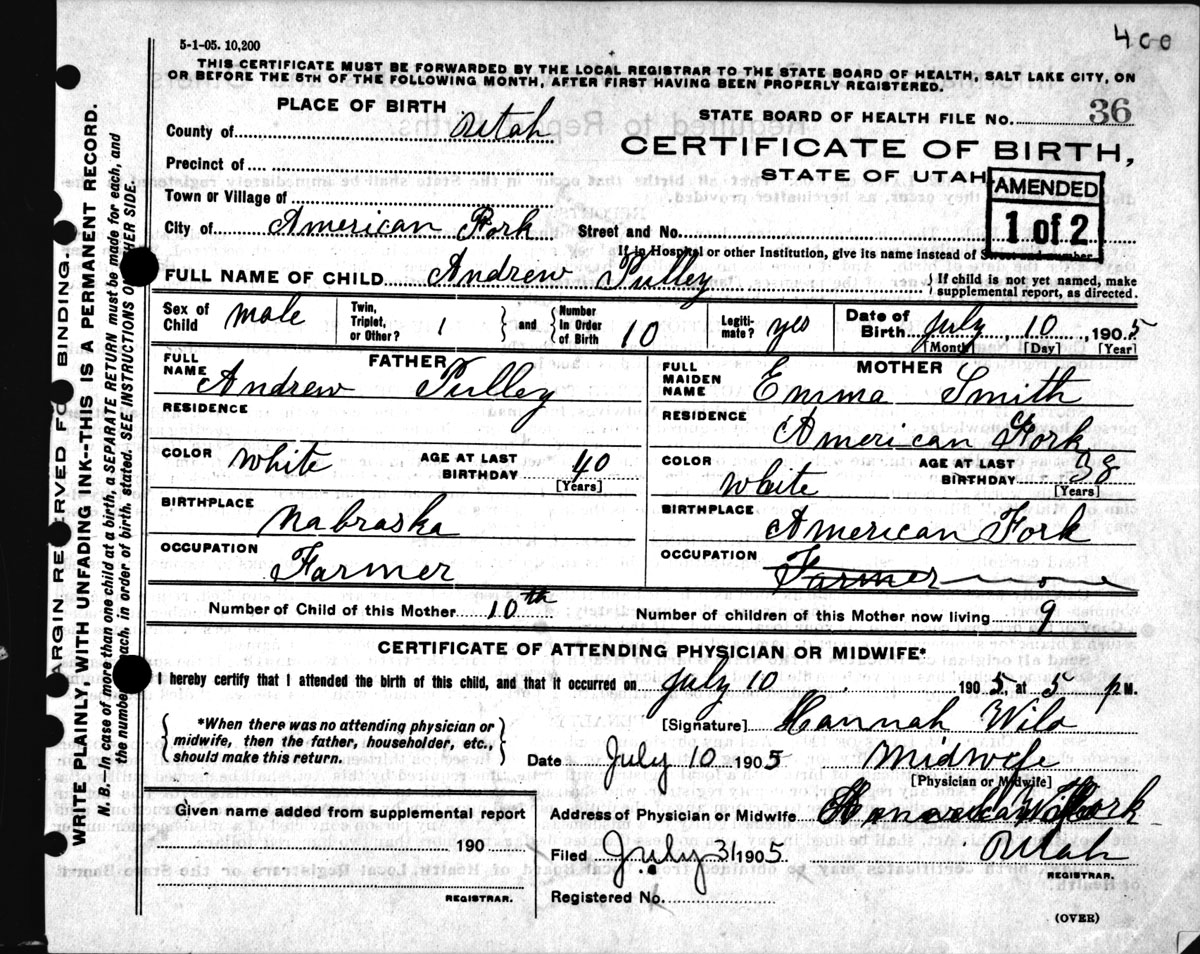 4 c e
5-1-05. 10,200
THIS CERTIFICATE MUST BE FORWARDED BY THE LOCAL REGISTRAR TO THE STATE BOARD OF HEALTH, SALT LAKE CITY, ON
OR BEFORE THE 5TH OF THE FOLLOWING MONTH, AFTER FIRST HAVING BEEN PROPERLY REGISTERED.
PLACE OF BIRTH
County of Utah
Precinct of
Town or Village of
City of American Fork
STATE BOARD OF HEALTH FILE NO. 36
CERTIFICATE OF BIRTH,
STATE OF UTAH
AMENDED
1 of 2
Street and No.
If in Hospital or other Institution, give its name instead of Street and number.
FULL NAME OF CHILD Andrew Pulley
If child is not yet named, make
supplemental report, as directed.
Sex of Child male
Twin, Triplet, or Other? 1
and Number in Order of Birth 10
Legitimate? yes
Date of Birth July 10, 1905
[Month] [Day] [Year]
FATHER
FULL NAME Andrew Pulley
RESIDENCE
COLOR white AGE AT LAST BIRTHDAY 40
[Years]
BIRTHPLACE Nabraska
OCCUPATION Farmer
MOTHER
FULL MAIDEN NAME Emma Smith
RESIDENCE American Fork
COLOR white AGE AT LAST BIRTHDAY 38
[Years]
BIRTHPLACE American Fork
OCCUPATION Farmer none
Number of Child of this Mother 10th
Number of children of this Mother now living 9
CERTIFICATE OF ATTENDING PHYSICIAN OR MIDWIFE*
I hereby certify that I attended the birth of this child, and that it occurred on July 10 1905, at 5 p M.
*When there was no attending physician or
midwife, then the father, householder, etc.,
should make this return.
[Signature] Hannah Wild
Date July 10 1905 Midwife
[Physician or Midwife]
Given name added from supplemental report
190
REGISTRAR.
Address of Physician or Midwife Fork
Utah
Filed July 31 1905
REGISTRAR.
Registered No.
(OVER)
MARGIN RESERVED FOR BINDING.
WRITE PLAINLY WITH UNFADING INK--THIS IS A PERMANENT RECORD.
N. B.—In case of more than one child at a birth, a SEPARATE RETURN must be made for each, and
the number of each, in order of birth, stated. SEE INSTRUCTIONS ON OTHER SIDE.